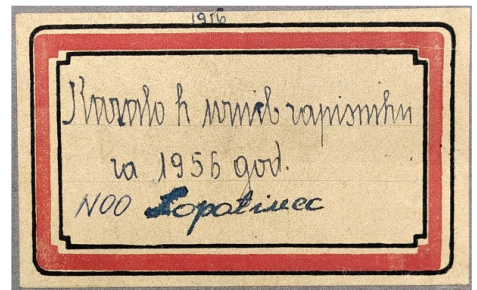 1956
Kazalo k zapisniku
za 1956 god.
NOO Lopatinec